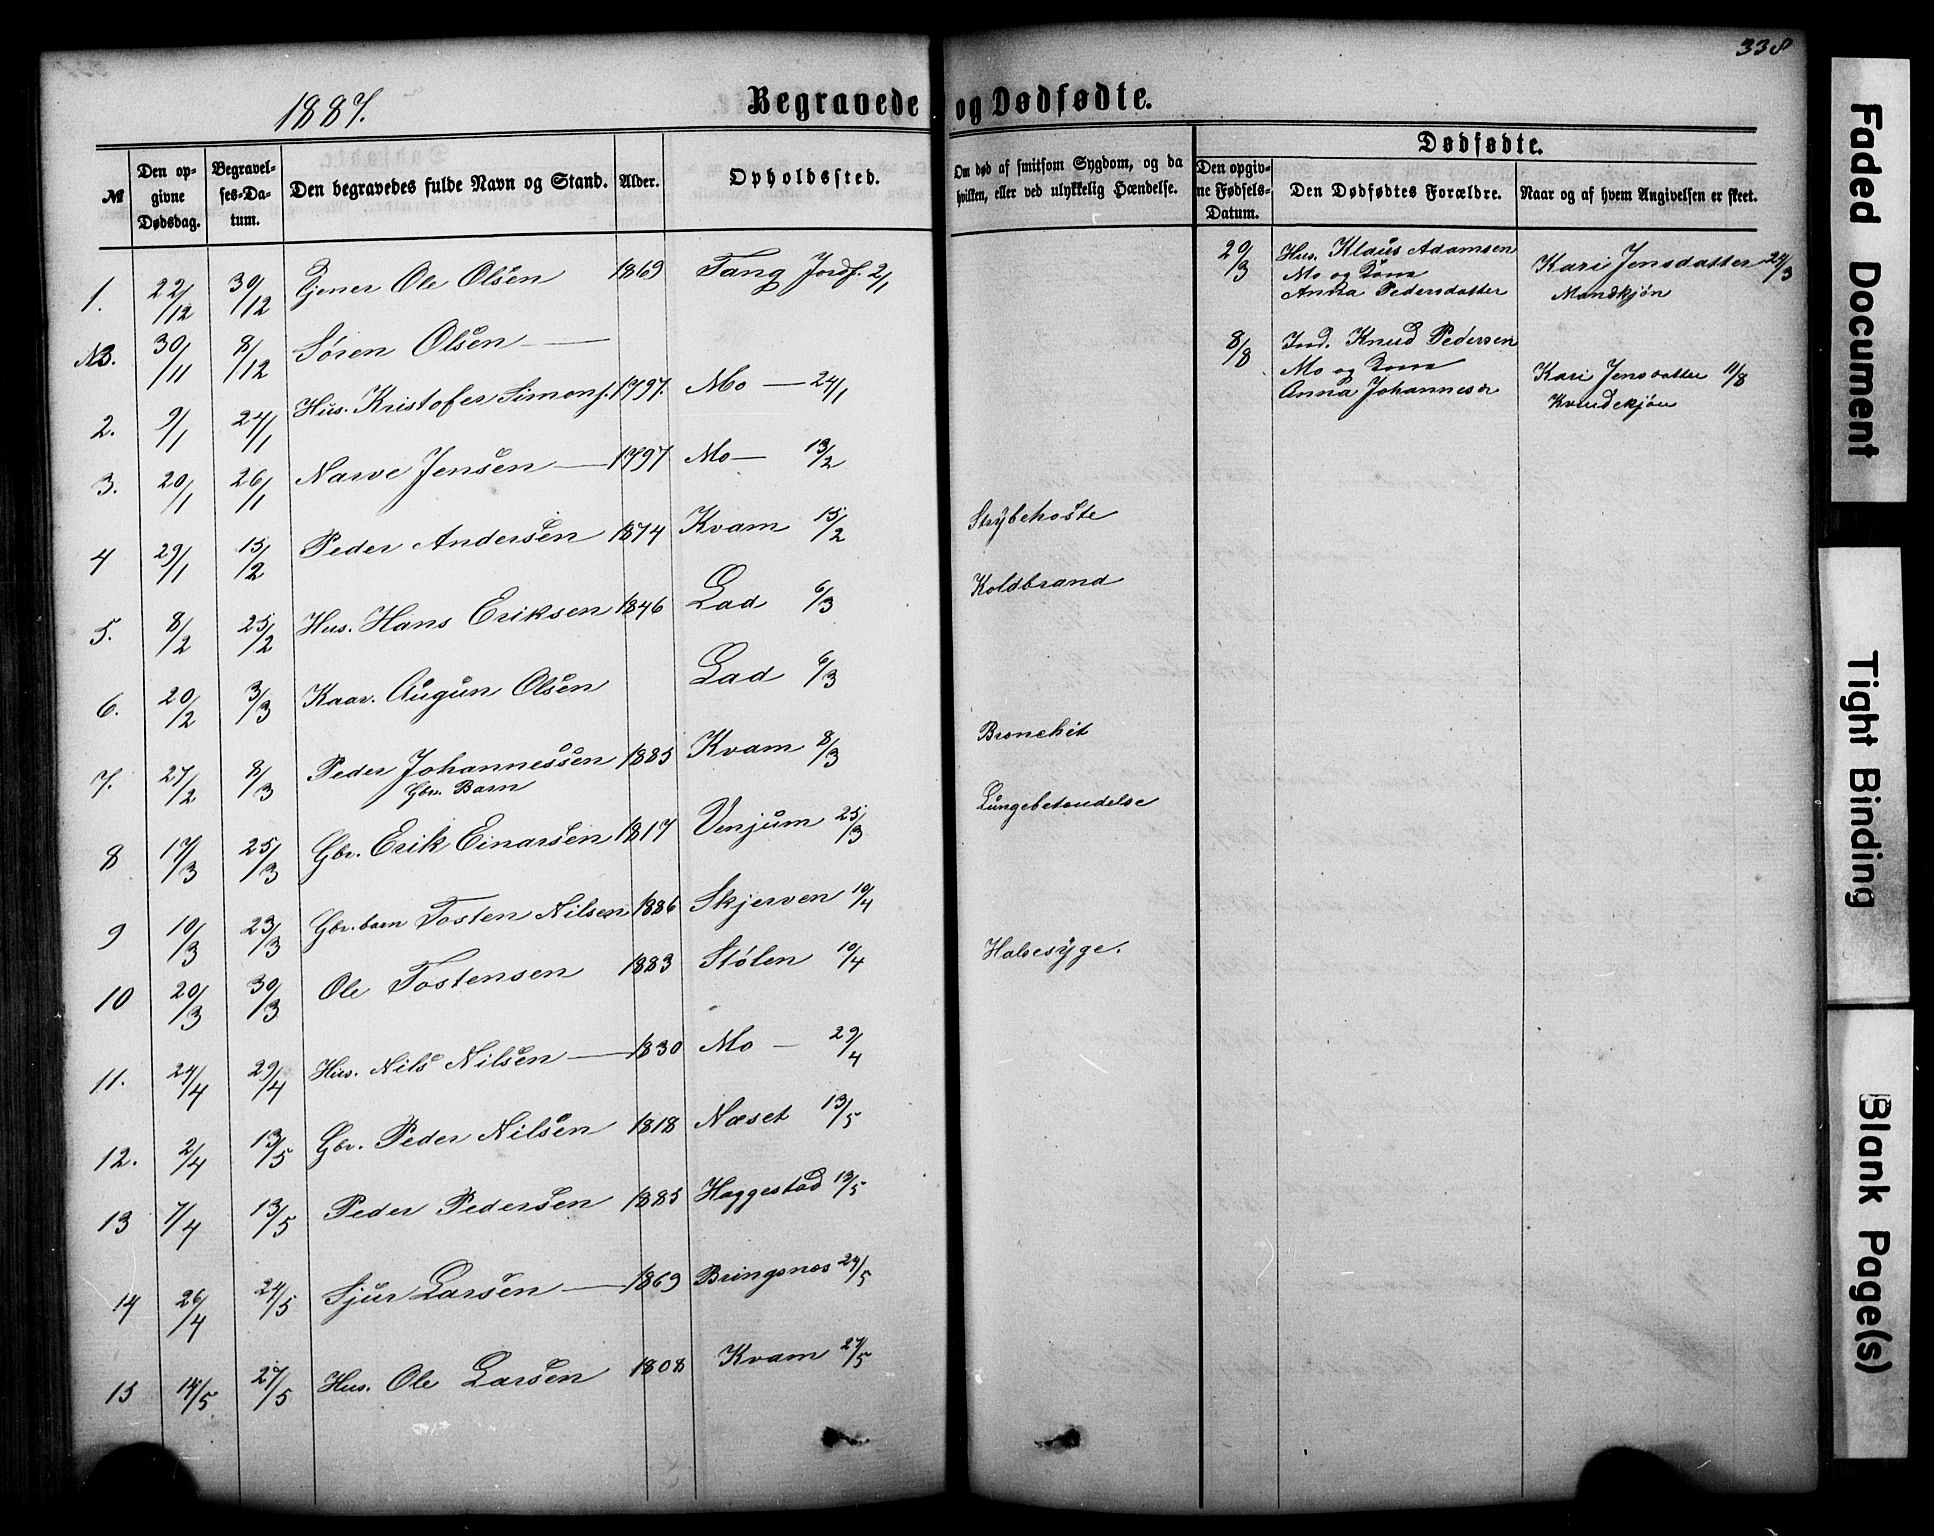 338
1887.
Begravede og Dødfødte.
№
Den opgivne Dødsdag.
Begravelses-Datum.
Den begravedes fulde Navn og Stand.
Alder.
Opholdssted.
Om død af smitsom Sygdom, og da hvilken, eller ved ulykkelig Hændelse.
Dødfødte.
Den opgivne Fødsels-Datum.
Den Dødfødtes Forældre.
Naar og af hvem Angivelsen er skeet.
1. 22/12 30/12 Tjener Ole Olsen 1869 Tang Jordf. 2/1
NB. 30/11 8/12 Søren Olsen —
2. 9/1 24/1 Hus. Kristofer Simons. 1797. Mo — 24/1
3. 20/1 26/1 Narve Jensen — 1797 Mo — 13/2
4 29/1 15/2 Peder Andersen 1874 Kvam 15/2 Strybehoste
5. 8/2 25/2 Hus. Hans Eriksen 1846 Lad 6/3 Koldbrand
6. 20/2 3/3 Kaar. Augun Olsen Lad 6/3
7. 27/2 8/3 Peder Johannessen 1885 Kvam 8/3 Bronchit
Gbr. Barn
8 17/3 25/3 Gbr. Erik Einarsen 1817 Venjum 25/3 Lungebetendelse
9 10/3 23/3 Gbr. barn Tosten Nilsen 1886 Skjerven 10/4
10 20/3 30/3 Ole Tostensen 1883 Stølen 10/4 Halsesyge.
11. 24/4 29/4 Hus. Nils Nilsen — 1830 Mo — 29/4
12. 2/4 13/5 Gbr. Peder Nilsen 1818 Næset 13/5
13 7/4 13/5 Peder Pedersen 1885 Haggestad 13/5
14 26/4 24/5 Sjur Larsen — 1869 Bringsnæs 24/5
15 14/5 27/5 Hus. Ole Larsen 1808 Kvam 27/5
20/3 Hus. Klaus Adamsen
Mo og Kone
Anna Pedersdatter
Kari Jensdatter 24/3
Mandkjøn
8/8 Ind. Knud Pedersen
Mo og Kone
Anna Johannesdr
Kari Jensdatter 11/8
Kvindekjøn
Faded Document
Tight Binding
Blank Page(s)